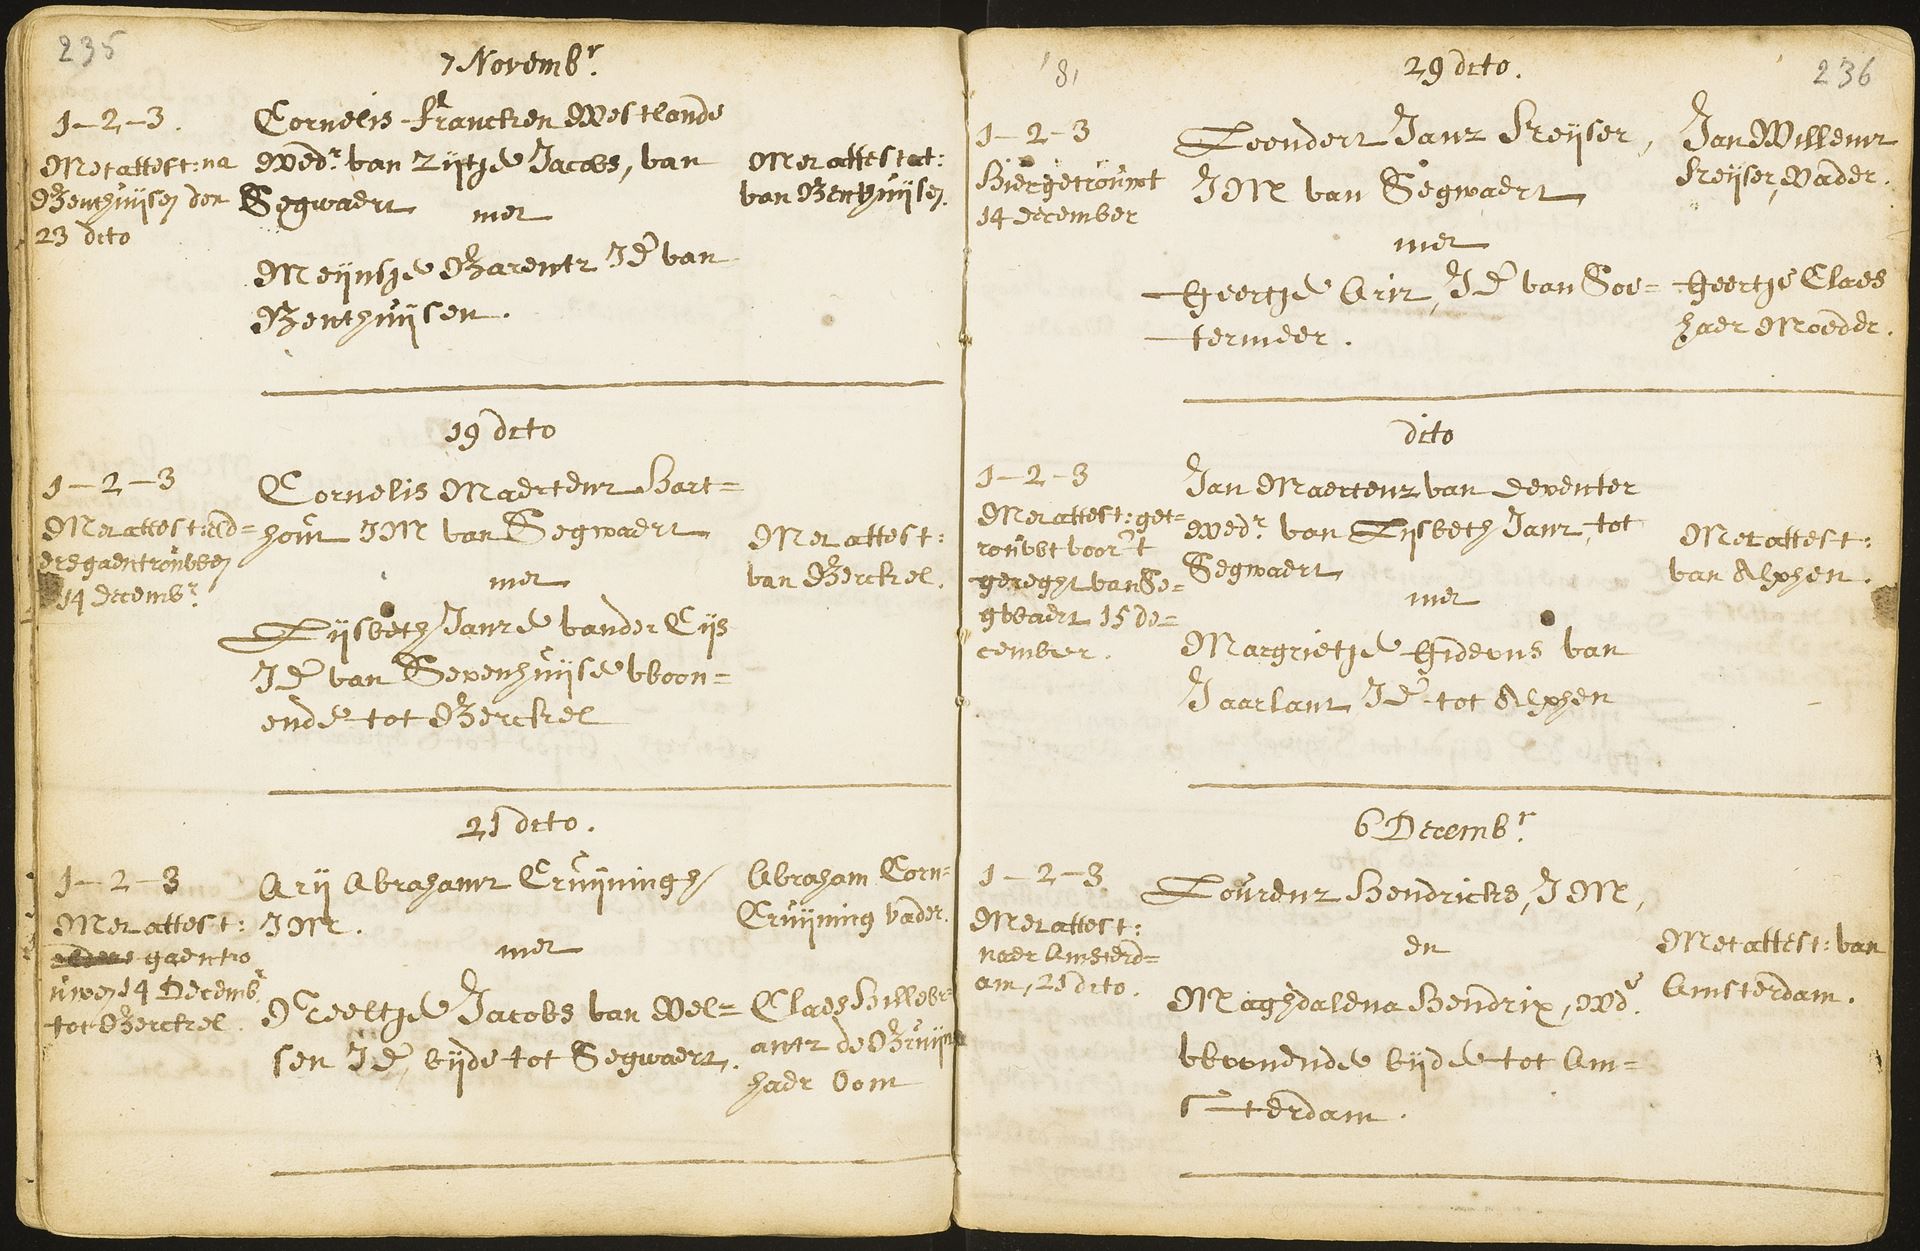 235
7 Novembr.
1-2-3.
Met attest: na
Benthuijsen den
23 dito
Cornelis Francken Westlande
Wedr. van Zijtje Jacobs, van
Segwaert met
Meijnsje Barentz JD van
Benthuijsen.
Met attestat:
van Benthuijsen.
19 dito
1-2-3
Met attest: eld=
ers gaen trouwen
14 decembr.
Cornelis Maertensz Hart=
hout JM van Segwaert
met
Lijsbeth Jansze vander Eijs
JD van Sevenhuijse woon=
ende tot Berckel
Met attest:
van Berckel.
21 dito.
1-2-3
Met attest:
gaen tro
uwen 14 Decemb.
tot Berckel.
Arij Abrahamsz Cruijningh
JM.
met
Neeltje Jacobs van Wel=
sen JD, bijde tot Segwaert.
Abraham Corn=
Cruijning vader.
Claes Hillebr=
antz de Bruijn
haer Oom
'81
29 dito.
236
1-2-3
Hier getrouwt
14 december
Leendert Jansz Kreijser,
JM van Segwaert
met
Geertje Arisz, JD van Soe=
termeer.
Jan Willemsz
Kreijser, Vader.
Geertje Claes
haer Moeder.
dito
1-2-3
Met attest: get=
rouwt voor 't
gereght van Se=
gwaert 15 de=
cember.
Jan Maertensz van deventer
Wedr. van Lijsbeth Jansz, tot
Segwaert
met
Margrietje Gideons van
Jaarlant JD tot Alphen
Met attest:
van Alphen.
6 Decembr.
1-2-3
Met attest:
naer Amsterd=
am, 21 dito.
Lourens Hendricks, JM,
en
Maghdalena Hendrix, Wde.
woonende bijde tot Am=
sterdam.
Met attest: van
Amsterdam.